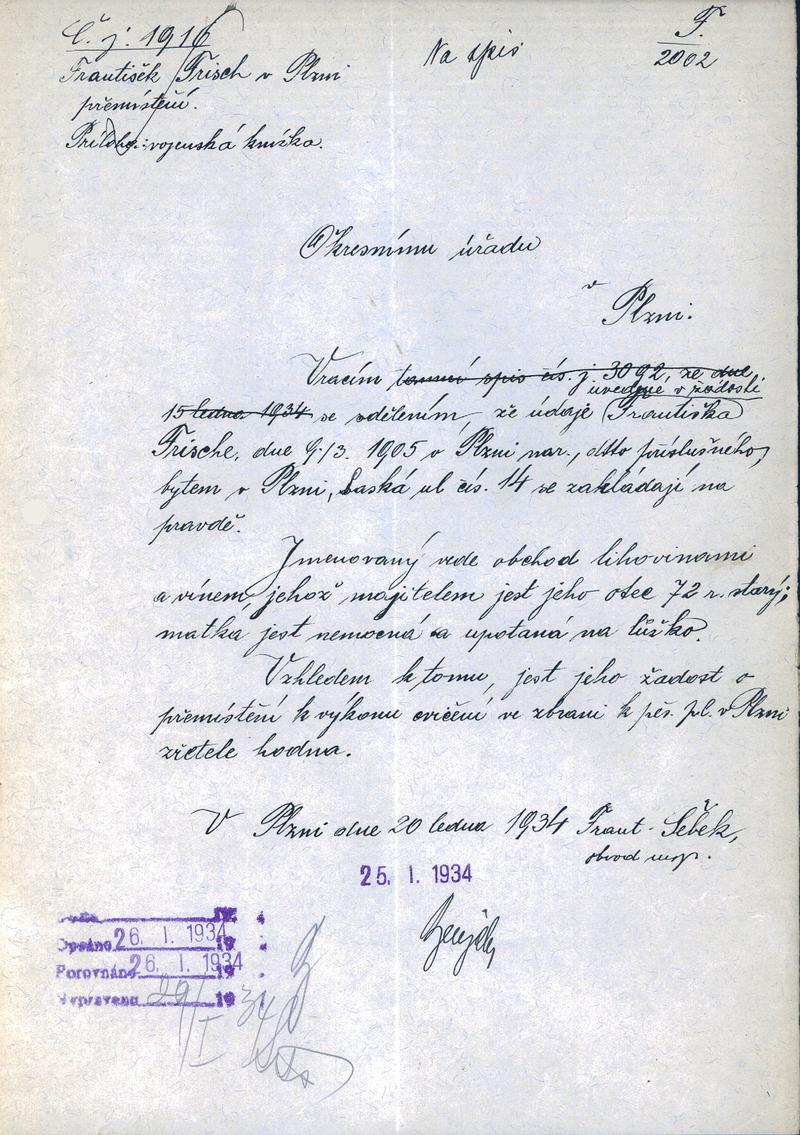 Č. j. 1916
František Frisch v Plzni
přemístění.
Příloha: vojenská knížka.
Na spis
F.
2002
Okresnímu úřadu
v
Plzni.
Vracím tamní spis čís. j. 3092, ze dne
uvedené v žádosti
15 ledna 1934 se sdělením, že údaje Františka
Frische, dne 9./3. 1905 v Plzni nar., dtto příslušného,
bytem v Plzni, Saská ul čís. 14 se zakládají na
pravdě.
Jmenovaný vede obchod lihovinami
a vínem, jehož majitelem jest jeho otec 72 r. starý;
matka jest nemocná a upotaná na lůžko.
Vzhledem k tomu, jest jeho žádost o
přemístění k výkonu cvičení ve zbrani k pěš. pl. v Plzni
zřetele hodna.
V Plzni dne 20 ledna 1934 Frant. Šebek,
obvod insp.
25. I. 1934
Opsáno 26. I. 1934
Porovnáno 26. I. 1934
Vypraveno 29/I 34